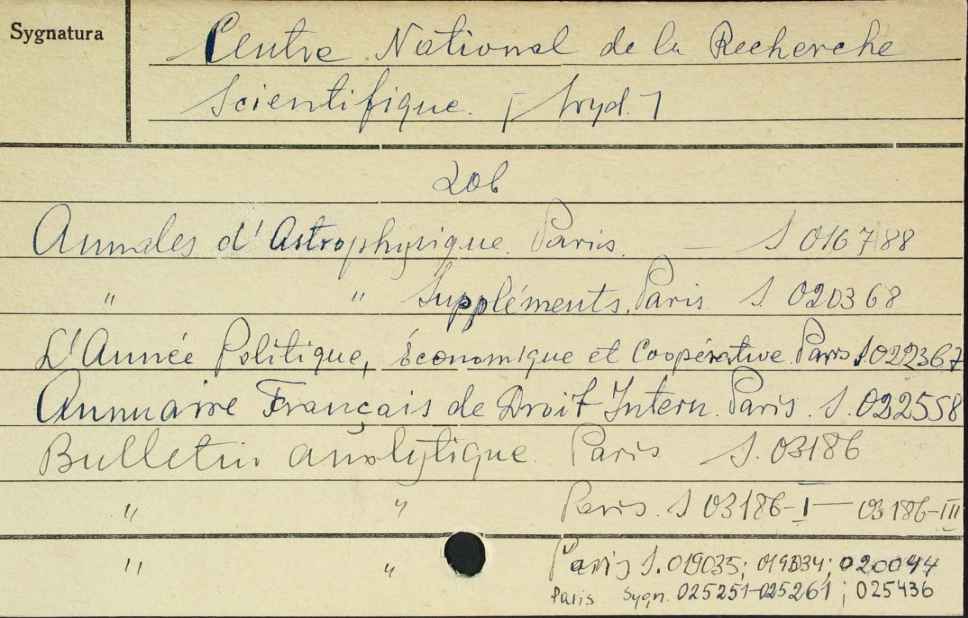 Sygnatura
Centre National de la Recherche
Scientifique. [wyd.]
zob
Annales d'Astrophysique. Paris. — S 016788
" " Suppléments. Paris S 020368
L'Année Politique, Économique et Coopérative Paris S 022367
Annuaire Français de Droit Intern. Paris. S. 022558
Bulletin analytique Paris S. 03186
" " Paris. S 03186-I — 03186-III
" " Paris S. 019035; 019034; 020044
Paris Sygn. 025251-025261; 025436